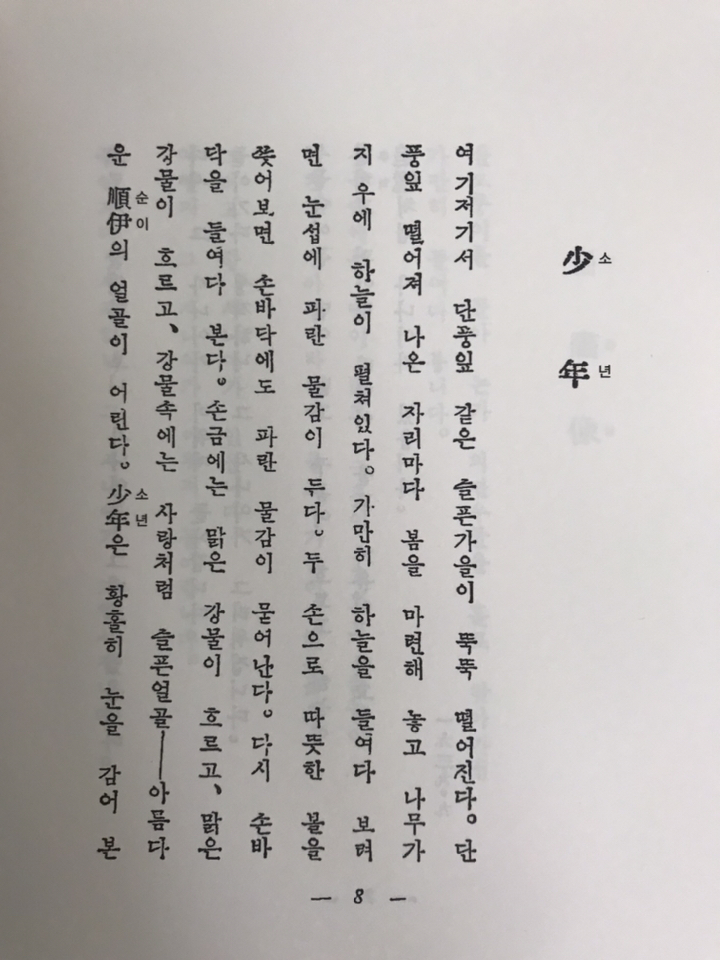 少年
소년
여기저기서 단풍잎 같은 슬픈가을이 뚝뚝 떨어진다。단
풍잎 떨어져 나온 자리마다 봄을 마련해 놓고 나무가
지 우에 하늘이 펼쳐있다。가만히 하늘을 들여다 보려
면 눈섭에 파란 물감이 두다。두 손으로 따뜻한 볼을
쯧어보면 손바닥에도 파란 물감이 묻어난다。다시 손바
닥을 들여다 본다。손금에는 맑은 강물이 흐르고、맑은
강물이 흐르고、강물속에는 사랑처럼 슬픈얼골──아름다
운 順伊의 얼골이 어린다。少年은 황홀히 눈을 감어 본
순이
소년
— 8 —